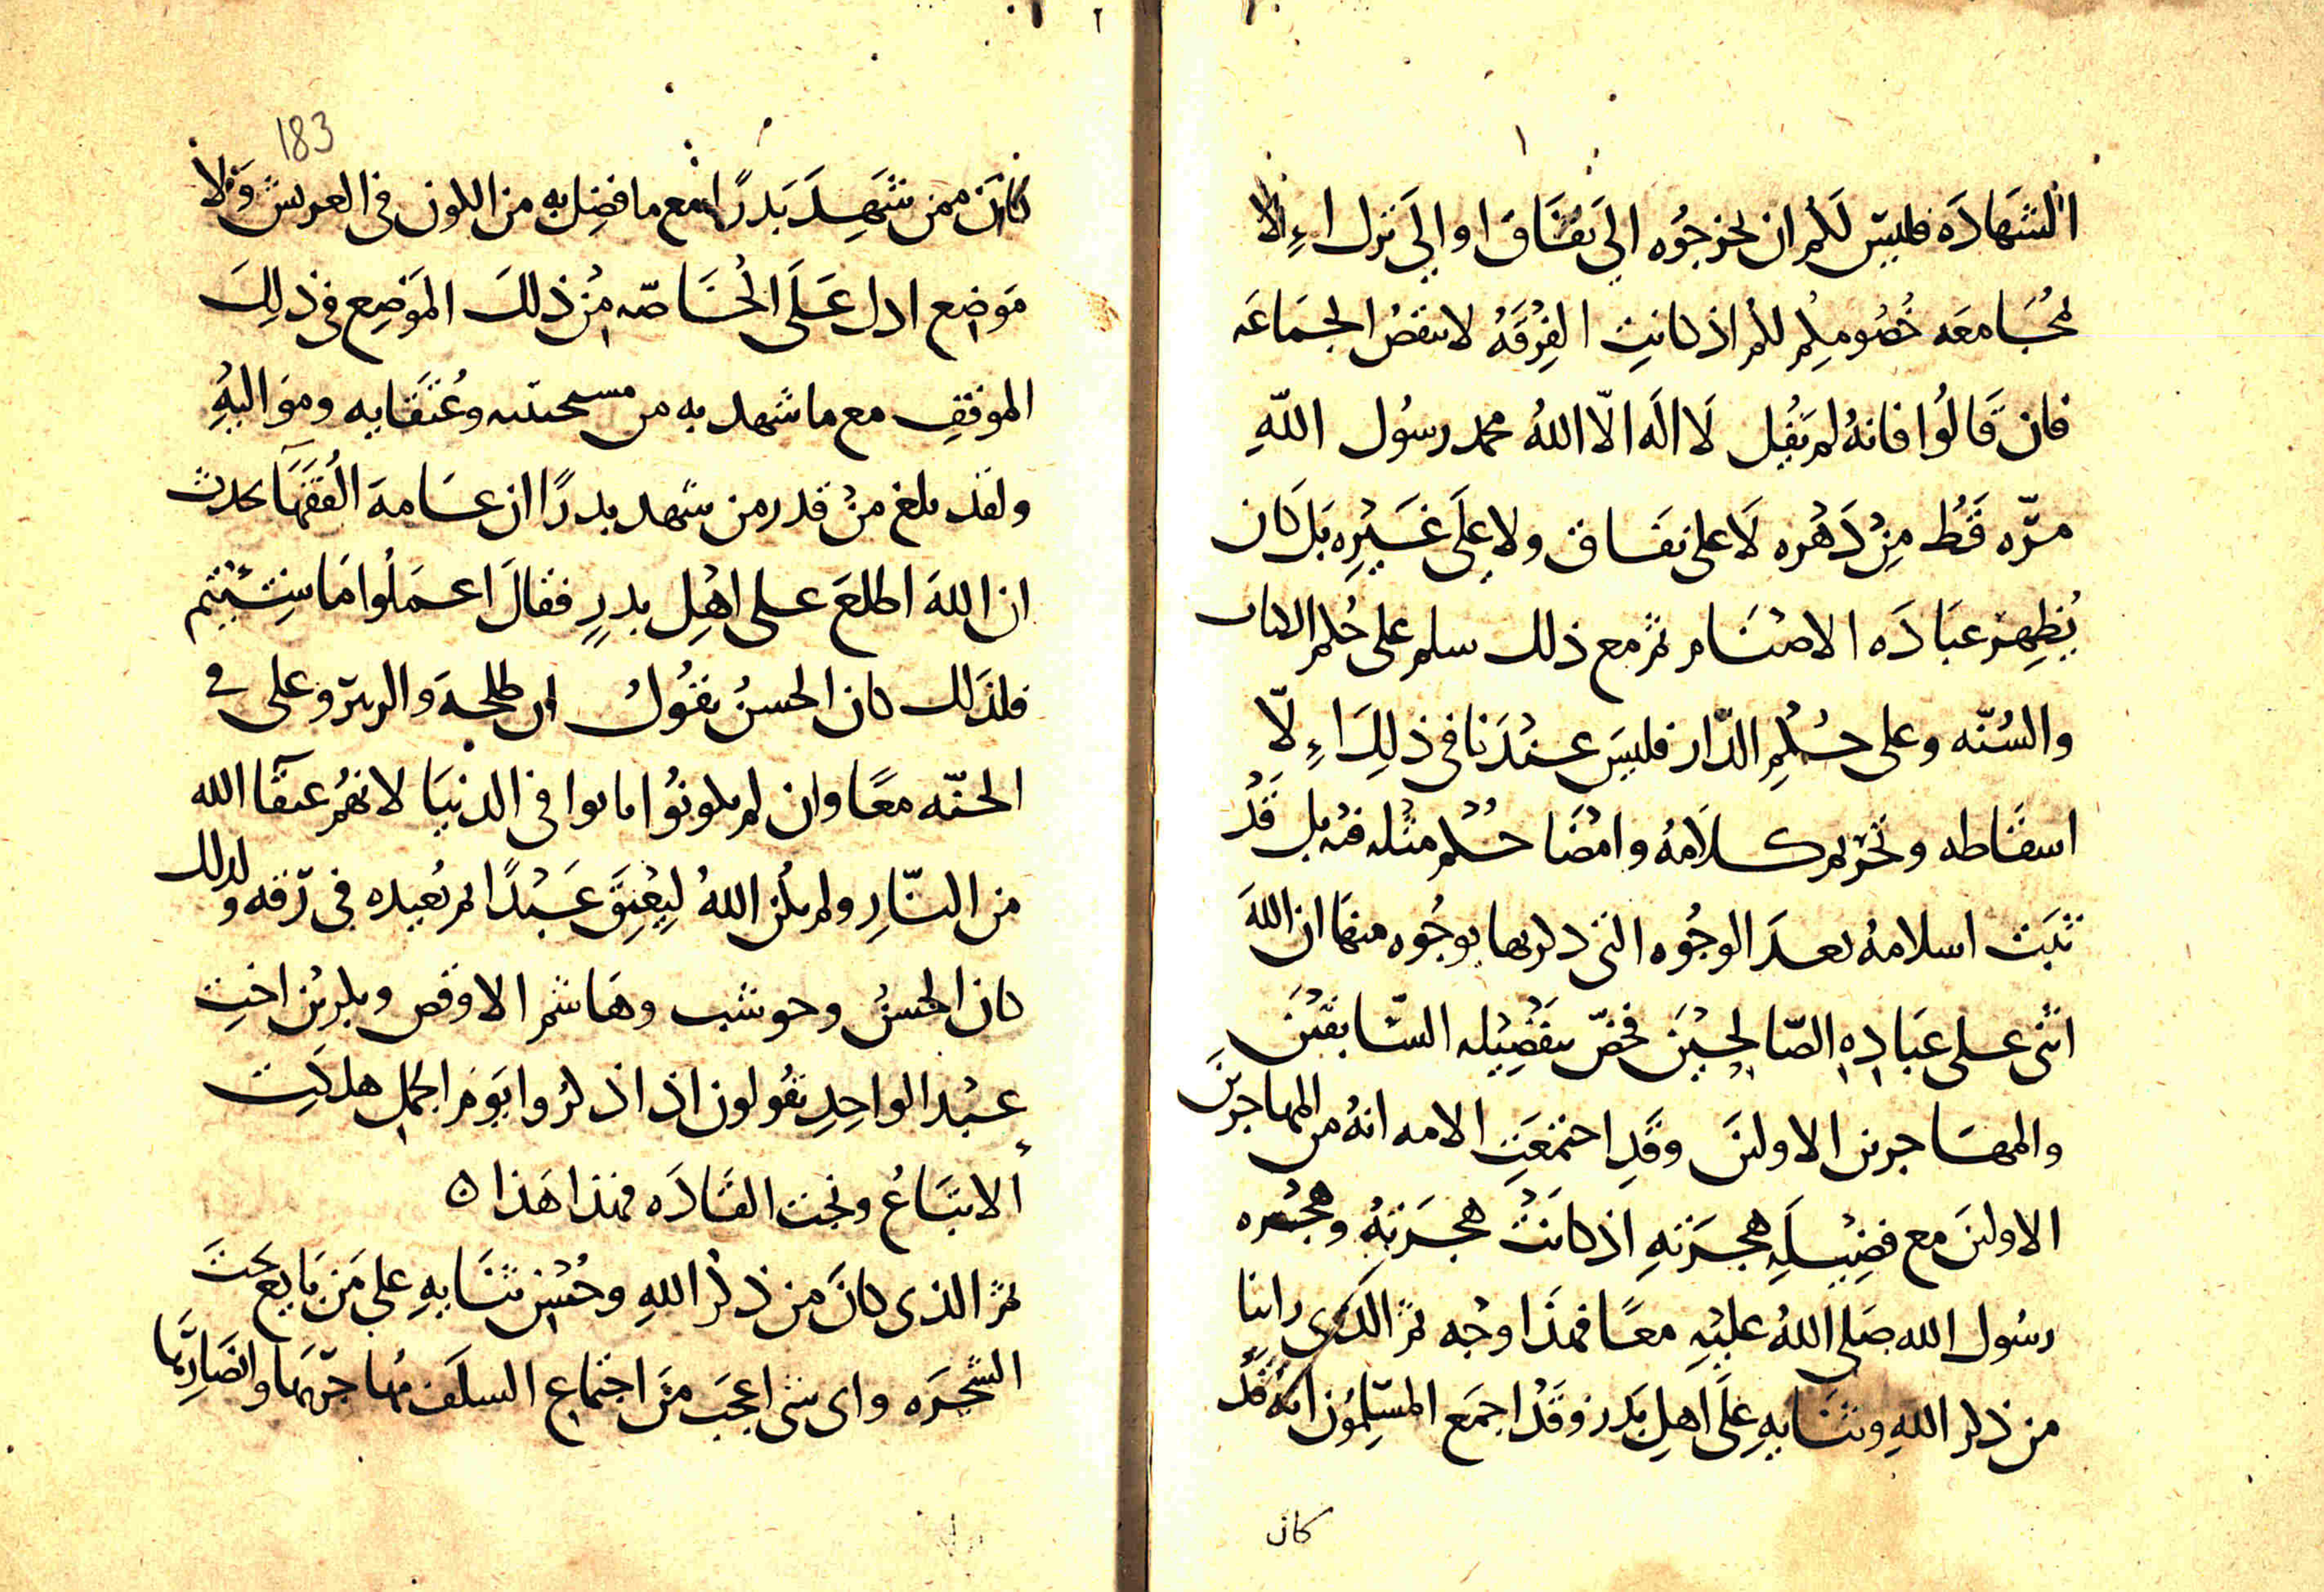 ١
الشَهادَه فليسَ لَكم ان تخرجُوه الى نفَاق او الى شرك اءِلا
بمُجَامعَه خُصُومكِم لكم اذ كانتِ الفِرْقَهُ لا تنقصُ الجمَاعَه
فان قَالُوا فانهُ لم يَقُل لَا اله الّا اللهُ محمد رسُول اللّهِ
مرّه قَط مِنْ دَهْره لَا على نفَاق ولا على غَيْرِه بَل كان
يُظهِر عبَادَه الاصْنَام ثم مع ذلك سلم على حُكم الكتاب
والسُنّه وعلى حُكْمِ الدّار فليسَ عنْدَنا فى ذلِكَ اءِلّا
اسقَاطه وتحْريم كلامُه وامْضَا حُكْم مثْله فيه بل قَدْ
ثبَت اسلامهُ بعدَ الوجُوه التى ذكربها بوجُوه منهَا ان اللهَ
اثنى على عبَادِهِ الصّالحِيْنَ فخصّ بتفْضِيْله السّابقيْنَ
والمهَاجرين الاولينَ وقَدِ اجتمعَتِ الامه انهُ من المهاجرينَ
الاولينَ مع فضِيْلَهِ هجرَتهِ اذ كانَتْ هجرَتهُ وهجْره
رسُول الله صَلى اللهُ عليْهِ معًا فهذَا وجْه ثم الَذى راينا
من ذكر اللهِ وثنَايهِ علَى اهلِ بَدر وقَدْ اجمَع المسْلِمُون انهُ قَدْ
كان
٢
183
كانَ ممن شَهِدَ بَدرًا مع ما فضِل به من الكون فى العريش وَلا
مَوضِع ادل عَلَى الخَاصّه مِنْ ذلكَ المَوْضِع فى ذلِكَ
الموقفِ مع ما شهد به من مسحته وعُتقَايه ومَواليهِ
ولقد بلغ منْ قدر من شهد بدرًا ان عَامهَ الفُقَهَا تحدث
ان اللهَ اطلعَ على اهْلِ بدرٍ فقالَ اعمَلُوا مَا شِئْتم
فلذَلك كان الحسنُ يقُولُ ان طلحهَ والزبيرَ وعلى فى
الجنّه معًا وان لم يكونُوا ماتوا فى الدنيَا لانهُم عتقَا الله
من النّارِ ولم يكُن اللهُ ليعْتِقَ عَبْدًا ثم يُعيده فى رّقه ولذلك
كان الحسنُ وحوشب وهَاشم الاوقص وبكر بْن اختِ
عبْد الواحِدِ يقُولون اذا ذكرُوا يَومَ الجملِ هلكَت
الاتبَاعُ ونجت القَادَه فهذا هَذا ٥
ثم الذى كانَ من ذكْر اللهِ وحُسْن ثنَايهِ على مَن بَايعَ تحتَ
الشجرَه واى شى اعجبَ مِنَ اجتماعِ السلَف مُهاجرّيها وانصَارِيّها